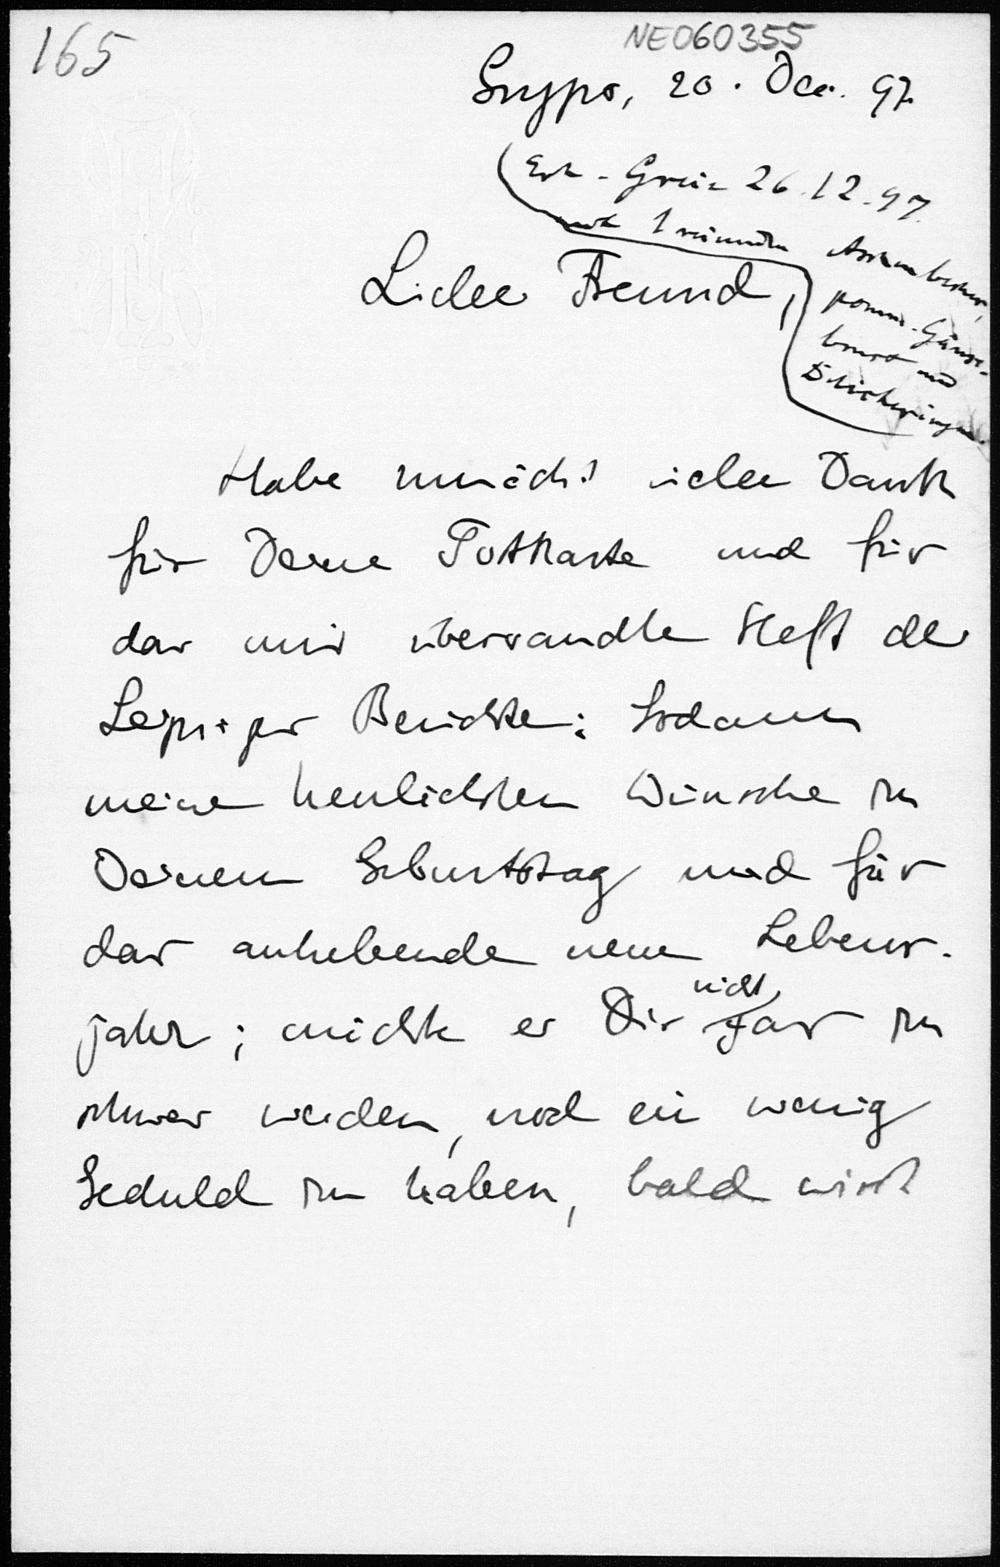 165
NE060355
Gryps, 20. Dec. 97.
Erh. Graz 26.12.97.
mit 1
pomm. Gänse-
brust und
Lieber Freund,
Habe zunächst vielen Dank
für Deine Postkarte und für
das mir übersandte Heft der
Leipziger Berichte; sodann
meine herzlichsten Wünsche zu
Deinem Geburtstag und für
das anhebende neue Lebens-
jahr; möchte es Dir nicht gar zu
schwer werden, noch ein wenig
Geduld zu haben, bald wird